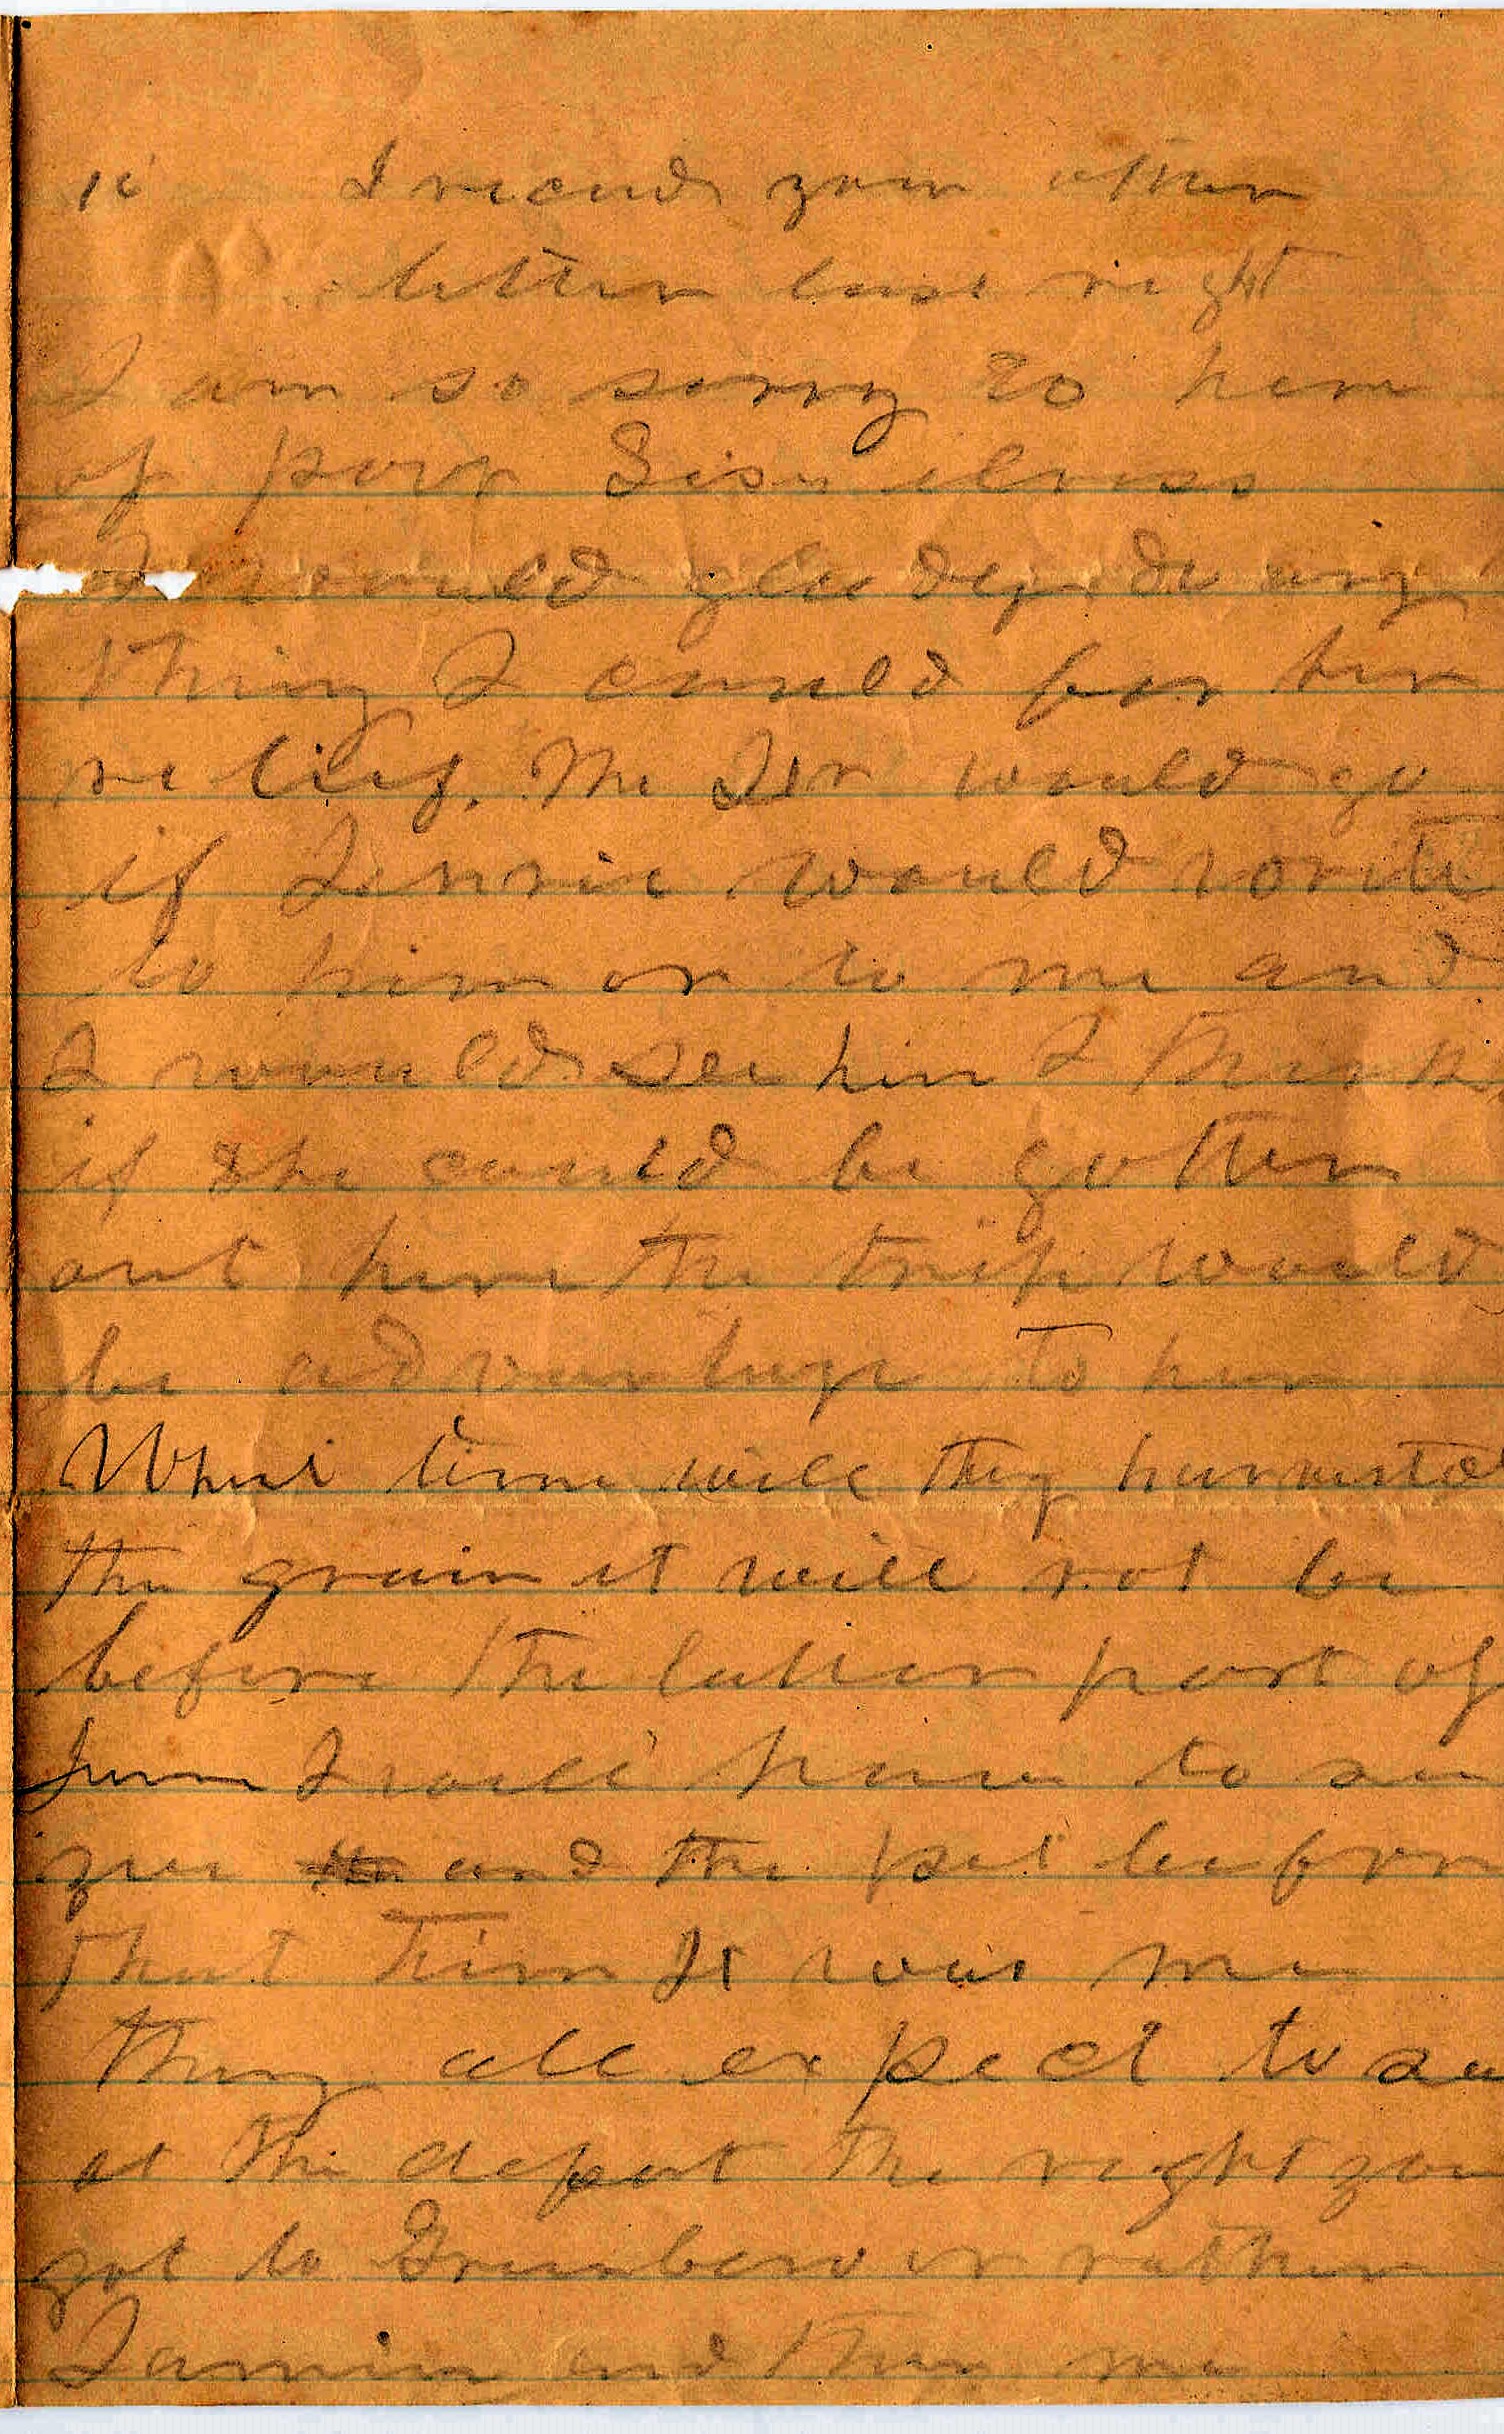 I recieved your other
letter last night
I am so sorry to hear
of poor Sisu illness
I would gladly do any
thing I could for her
relief. Mc would go
if Jennie would write
to him or to me and
I would see him I think
if she could be gotten
out here the trip would
be advantage to her
What time will they harvest
the grain it will not be
before the latter part of
June I will have to see
you and the pet before
that time It was me
they all expect to see
at the depot the night you
got to Greensboro or rather
Jamie and then me